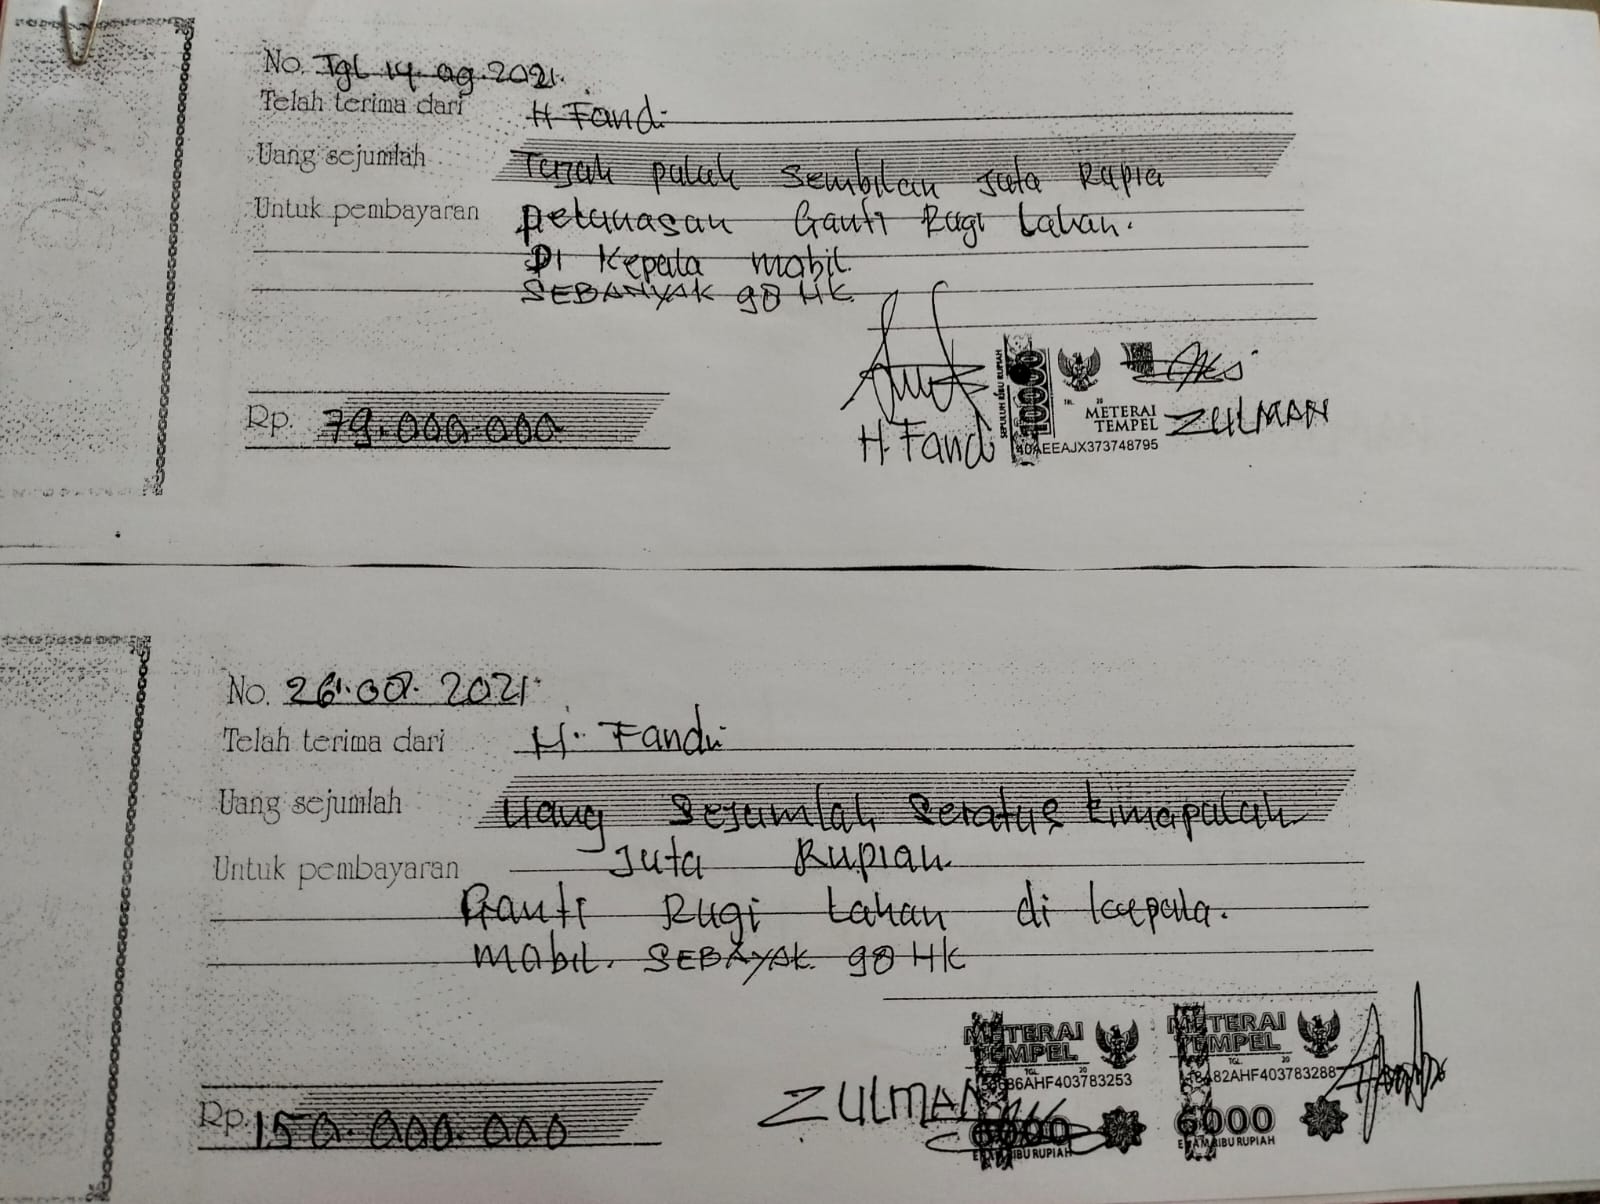 No. Tgl 14. ag. 2021.
Telah terima dari H Fandi
Uang sejumlah Tujah puluh Sembilan Juta Rupia
Untuk pembayaran pelunasan Ganti Rugi Lahan.
Di Kepala mobil.
SEBANYAK 98 HK
SEPULUH RIBU RUPIAH
10000
TGL. 20
METERAI
TEMPEL
AEEAJX373748795
Rp. 79.000.000
H. Fandi
ZULMAN
No. 26.08.2021.
Telah terima dari H. Fandi
Uang sejumlah Uang Sejumlah Seratus Limapuluh
Untuk pembayaran Juta Rupiah
Ganti Rugi Lahan di kepala.
mobil. SEBAYAK. 98 HK
METERAI METERAI
TEMPEL TEMPEL
TGL. 20 TGL. 20
86AHF403783253 82AHF403783288
ZULMAN
6000 6000
ENAM RIBU RUPIAH ENAM RIBU RUPIAH
Rp. 150.000.000